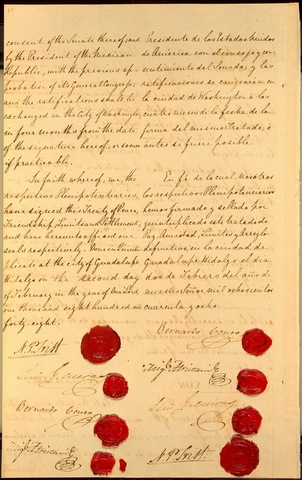 consent of the Senate thereof; and
by the President of the Mexican
Republic, with the previous ap-
probation of its General Congress;
and the ratifications shall be
exchanged in the City of Washington,
in four months from the date
of the signature hereof, or sooner
if practicable.
In faith whereof, we, the
respective Plenipotentiaries,
have signed this Treaty of Peace,
Friendship, Limits and Settlement,
and have hereunto affixed our
seals respectively. Done in Quintu-
plicate at the City of Guadalupe
Hidalgo on the second day
of February in the year of Our Lord
one thousand eight hundred and
forty-eight.
N. P. Trist
Luis G. Cuevas
Bernardo Couto
Migl. Atristain
Presidente de los Estados Unidos
de America con el consejo y con-
sentimiento del Senado; y las
ratificaciones se cangearán en
la ciudad de Washington a los
cuatro meses de la fecha de la
firma del mismo Tratado, ó
antes si fuere posible.
En fe de lo cual, nosotros
los respectivos Plenipotenciarios
hemos firmado y sellado por
quintuplicado este tratado de
Paz, Amistad, Limites y Arreglo
definitivo, en la ciudad de
Guadalupe Hidalgo el dia
dos de Febrero del año de
nuestro Señor mil ochocientos
cuarenta y ocho.
Bernardo Couto
Migl. Atristain
Luis G. Cuevas
N. P. Trist